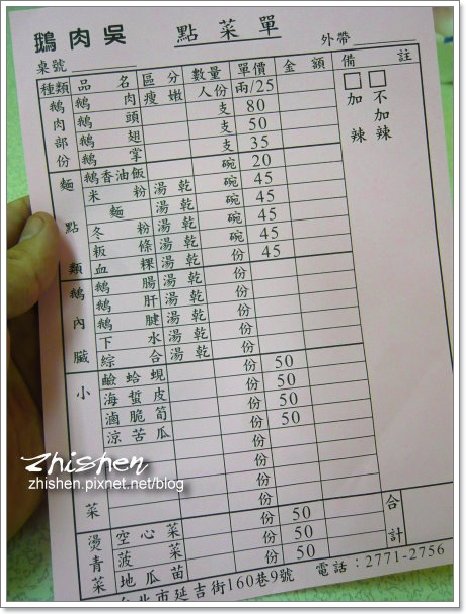 鵝肉吳 點菜單
桌號 外帶
種類 品名 區分 數量 單價 金額 備註
鵝肉部份 鵝肉 瘦嫩 人份 兩/25 加辣 不加辣
鵝頭 支 80
鵝翅 支 50
鵝掌 支 35
麵點類 鵝香油飯 碗 20
米粉 湯乾 碗 45
麵 湯乾 碗 45
冬粉 湯乾 碗 45
粄條 湯乾 碗 45
血粿 湯乾 份 45
鵝內臟 鵝腸 湯乾 份
鵝肝 湯乾 份
鵝腱 湯乾 份
下水 湯乾 份
綜合 湯乾 份
小菜 鹹蛤蜆 份 50
海蜇皮 份 50
滷脆筍 份 50
涼苦瓜 份 50
份
份
份
份
燙青菜 空心菜 份 50 合計
菠菜 份 50
地瓜苗 份 50
台北市延吉街160巷9號 電話：2771-2756
Zhishen
zhishen.pixnet.net/blog